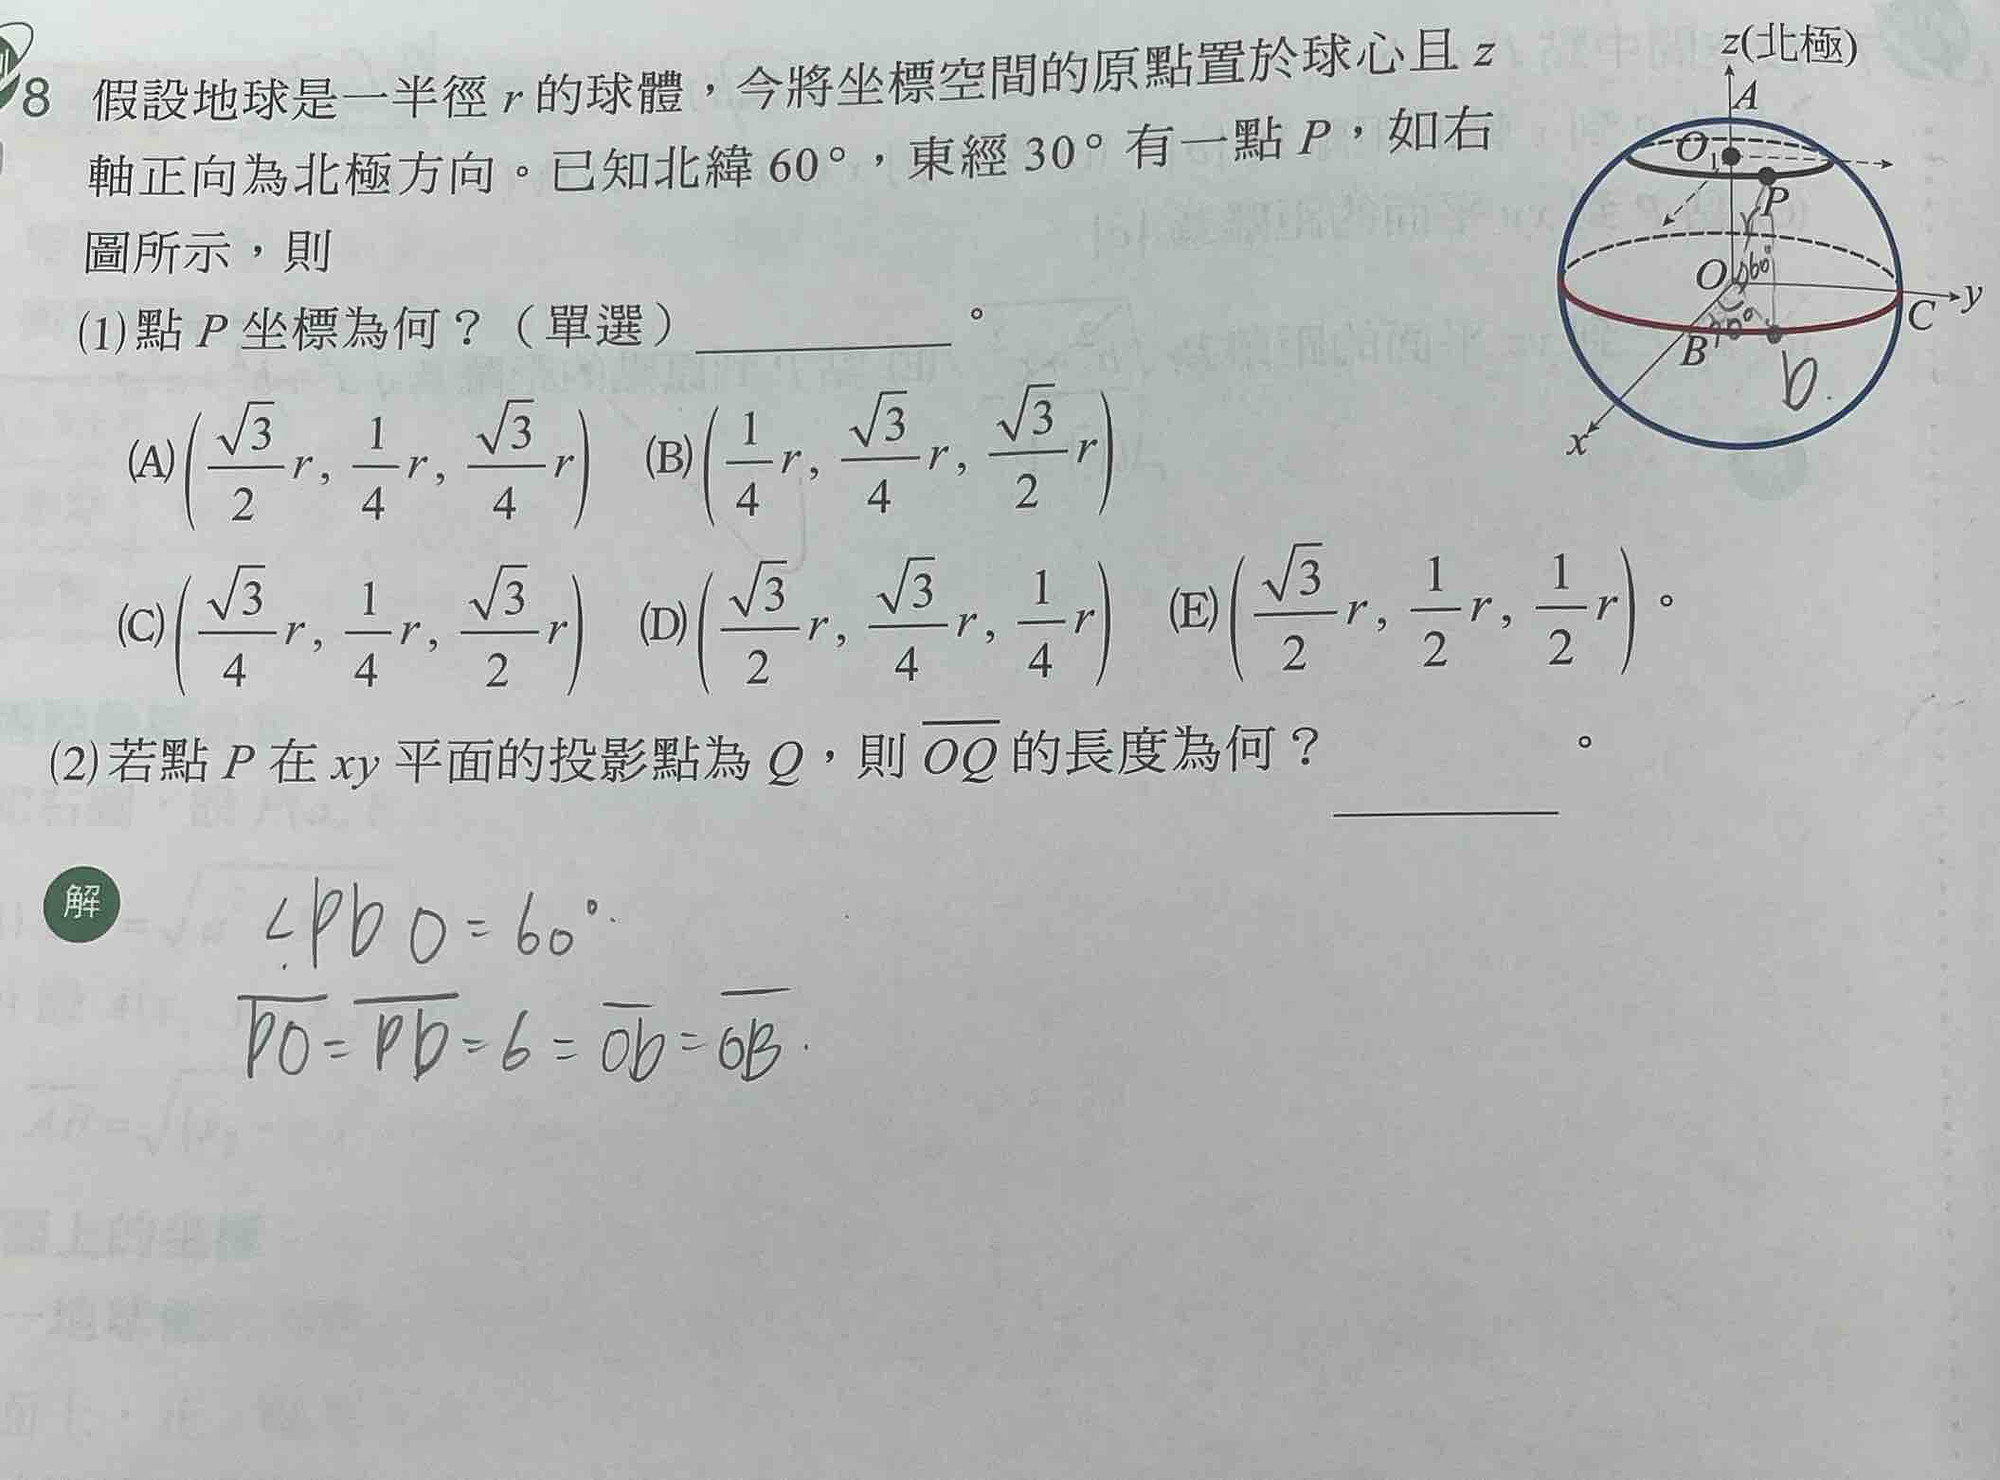 8 假設地球是一半徑 r 的球體，今將坐標空間的原點置於球心且 z
軸正向為北極方向。已知北緯 60°，東經 30° 有一點 P，如右
圖所示，則
(1)點 P 坐標為何？（單選）________。
(A)(√3/2 r, 1/4 r, √3/4 r) (B)(1/4 r, √3/4 r, √3/2 r)
(C)(√3/4 r, 1/4 r, √3/2 r) (D)(√3/2 r, √3/4 r, 1/4 r) (E)(√3/2 r, 1/2 r, 1/2 r)。
(2)若點 P 在 xy 平面的投影點為 Q，則 OQ 的長度為何？________。
z(北極)
A
O₁
P
r
O 60°
C y
B 30°
b.
x
解
∠PbO = 60°.
PO = Pb = 6 = Ob = OB.